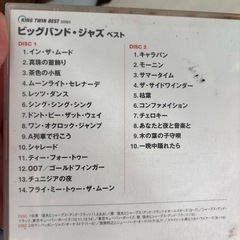 KING TWIN BEST SERIES
ビッグバンド・ジャズ ベスト
DISC 1
1.イン・ザ・ムード
2.真珠の首飾り
3.茶色の小瓶
4.ムーンライト・セレナーデ
5.レッツ・ダンス
6.シング・シング・シング
7.ドント・ビー・ザット・ウェイ
8.ワン・オクロック・ジャンプ
9.A列車で行こう
10.シャレード
11.ティー・フォー・トゥー
12.007/ゴールドフィンガー
13.チュニジアの夜
14.フライ・ミー・トゥー・ザ・ムーン
DISC 2
1.キャラバン
2.モーニン
3.サマータイム
4.ザ・サイドワインダー
5.枯葉
6.コンファメイション
7.チェロキー
8.あなたと夜と音楽と
9.木の葉の子守唄
10.一晩中踊れたら